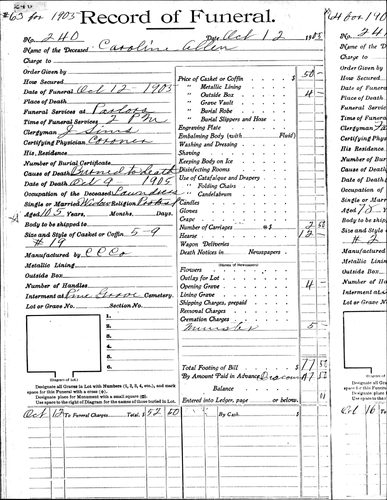 #63 for 1905
Record of Funeral.
No. 240 Date Oct 12 1905
Name of the Deceased Caroline Allen
Charge to
Order Given by
Date of Funeral Oct 12 - 1905
Place of Death
Funeral Services at Parlors
Time of Funeral Services 2 PM
Clergyman J Sims
Certifying Physician Coroner
His Residence
Number of Burial Certificate
Cause of Death Burned to death
Date of Death Oct 9 1905
Occupation of the Deceased Laundress
Single or Married Widow Religion
Aged 105 Years, Months, Days.
Body to be shipped to
Size and Style of Casket or Coffin 5-9
# 19
Manufactured by C C Co
Metallic Lining
Outside Box
Number of Handles
Interment at Pine Grove Cemetery.
Lot or Grave No. Section No.
1.
2.
3.
4.
5.
6.
(Diagram of Lot.)
Designate all Graves in Lot with Numbers (1, 2, 3, 4, etc.), and mark
space for this Funeral with a cross (+).
Designate place for Monument with a small square.
Use space to the right of Diagram for the names of those buried in Lot.
Oct 12 To Funeral Charges, Total, $ 52 50
Price of Casket or Coffin $ 50 -
" Metallic Lining
" Outside Box 4 -
" Grave Vault
" Burial Robe
" Burial Slippers and Hose
Engraving Plate
Embalming Body (with Fluid)
Washing and Dressing
Shaving
Keeping Body on Ice
Disinfecting Rooms
Use of Catafalque and Drapery
" Folding Chairs
" Candelabrum
Candles
Gloves
Crape
Number of Carriages @ $ 2 50
Hearse 12 -
Wagon Deliveries
Death Notices in Newspapers
(Names of Newspapers)
Flowers
Outlay for Lot
Opening Grave 4 -
Lining Grave
Shipping Charges, prepaid
Removal Charges
Cremation Charges
Minister 5 -
Total Footing of Bill $ 77 50
By Amount Paid in Advance
Balance
Entered into Ledger, page or below.
By Cash $
#64 for 190
No. 241
Name of the
Charge to
Order Given
Date of Fun
Place of Dea
Funeral Serv
Time of Fune
Clergyman
Certifying Ph
His Residence
Number of B
Cause of Dea
Date of Death
Occupation of
Single or Mar
Aged 75
Body to be shi
Size and Style
# 2
Manufactured
Metallic Linin
Outside Box
Number of H
Interment at
Lot or Grave
Oct 16